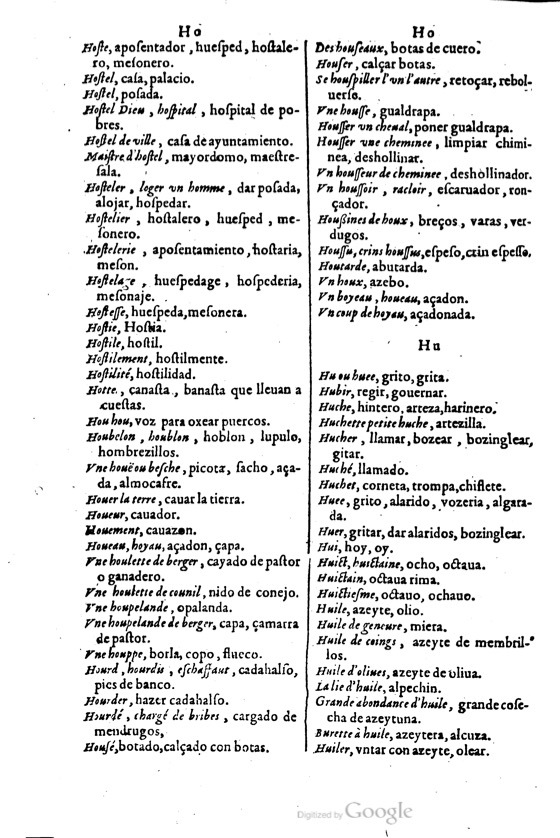 Ho
Hoſte, apoſentador, hueſped, hoſtale-
ro, meſonero.
Hoſtel, caſa, palacio.
Hoſtel, poſada.
Hoſtel Dieu, hoſpital, hoſpital de po-
bres.
Hoſtel de ville, caſa de ayuntamiento.
Maiſtre d'hoſtel, mayordomo, maeſtre-
ſala.
Hoſteler, loger vn homme, dar poſada,
alojar, hoſpedar.
Hoſtelier, hoſtalero, hueſped, me-
ſonero.
Hoſtelerie, apoſentamiento, hoſtaria,
meſon.
Hoſtelage, hueſpedage, hoſpederia,
meſonaje.
Hoſteſſe, hueſpeda, meſonera.
Hoſtie, Hoſtia.
Hoſtile, hoſtil.
Hoſtilement, hoſtilmente.
Hoſtilité, hoſtilidad.
Hotte, canaſta, banaſta que lleuan a
cueſtas.
Hou hou, voz para oxear puercos.
Houbelon, houblon, hoblon, lupulo,
hombrezillos.
Vne houë ou beſche, picota, facho, aça-
da, almocafre.
Houer la terre, cauar la tierra.
Houeur, cauador.
Houement, cauazon.
Houeau, hoyau, açadon, çapa.
Vne houlette de berger, cayado de paſtor
o ganadero.
Vne houlette de counil, nido de conejo.
Vne houpelande, opalanda.
Vne houpelande de berger, capa, çamarra
de paſtor.
Vne houppe, borla, copo, flueco.
Hourd, hourdis, eſchaffaut, cadahalſo,
pies de banco.
Hourder, hazer cadahalſo.
Hourdé, chargé de bribes, cargado de
mendrugos,
Houſé, botado, calçado con botas.
Ho
Des houſeaux, botas de cuero.
Houſer, calçar botas.
Se houſpiller l'vn l'autre, retoçar, rebol-
uerſe.
Vne houſſe, gualdrapa.
Houſſer vn cheual, poner gualdrapa.
Houſſer vne cheminee, limpiar chimi-
nea, deshollinar.
Vn houſſeur de cheminee, deshollinador.
Vn houſſoir, racloir, eſcaruador, ron-
çador.
Houſſines de houx, breços, varas, ver-
dugos.
Houſſu, crins houſſus, eſpeſo, crin eſpeſſo.
Houtarde, abutarda.
Vn houx, azebo.
Vn boyeau, houeau, açadon.
Vn coup de hoyau, açadonada.
Hu
Hu ou huee, grito, grita.
Hubir, regir, gouernar.
Huche, hintero, arteza, harinero.
Huchette petite huche, artezilla.
Hucher, llamar, bozear, bozinglear,
gitar.
Huché, llamado.
Huchet, corneta, trompa, chiflete.
Huee, grito, alarido, vozeria, algara-
da.
Huer, gritar, dar alaridos, bozinglear.
Hui, hoy, oy.
Huict, huictaine, ocho, octaua.
Huictain, octaua rima.
Huictieſme, octauo, ochauo.
Huile, azeyte, olio.
Huile de geneure, miera.
Huile de coings, azeyte de membril-
los.
Huile d'oliues, azeyte de oliua.
La lie d'huile, alpechin.
Grande abondance d'huile, grande coſe-
cha de azeytuna.
Burette à huile, azeytera, alcuza.
Huiler, vntar con azeyte, olear.
Digitized by Google